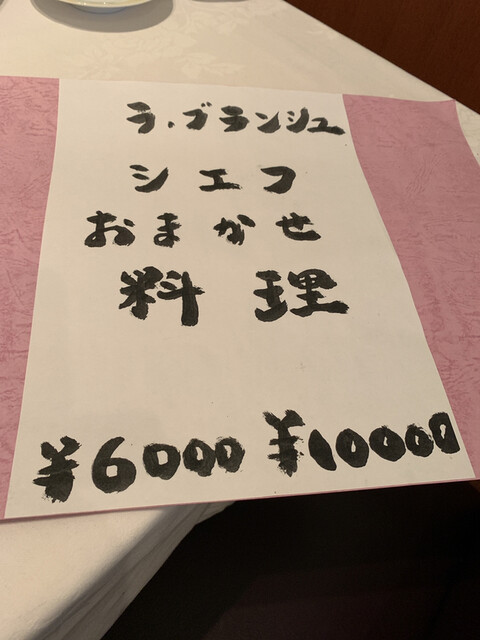 ラ.ブランシュ
シェフ
おまかせ
料理
¥6000 ¥10000